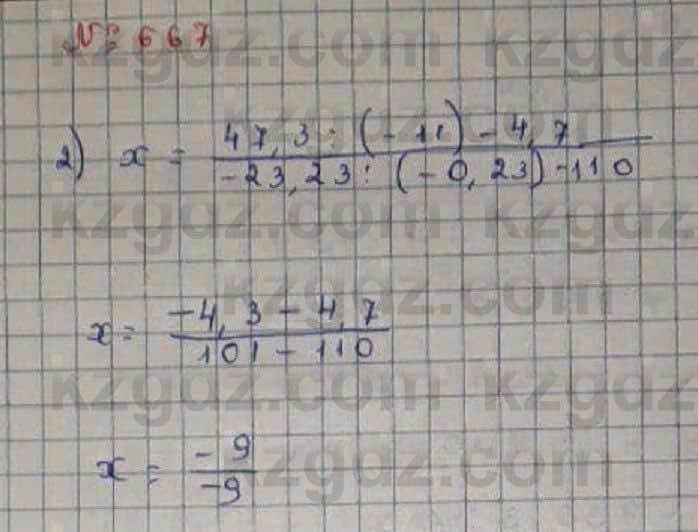 № 667
2) x = 47,3 : (-11) - 4,7
-23,23 : (-0,23) - 110
x = -4,3 - 4,7
101 - 110
x = -9
-9
kzgdz.com kzgdz.com
kzgdz.com
kzgdz.com kzgdz.com
kzgdz.com
kzgdz.com kzgdz.com
kzgdz.com